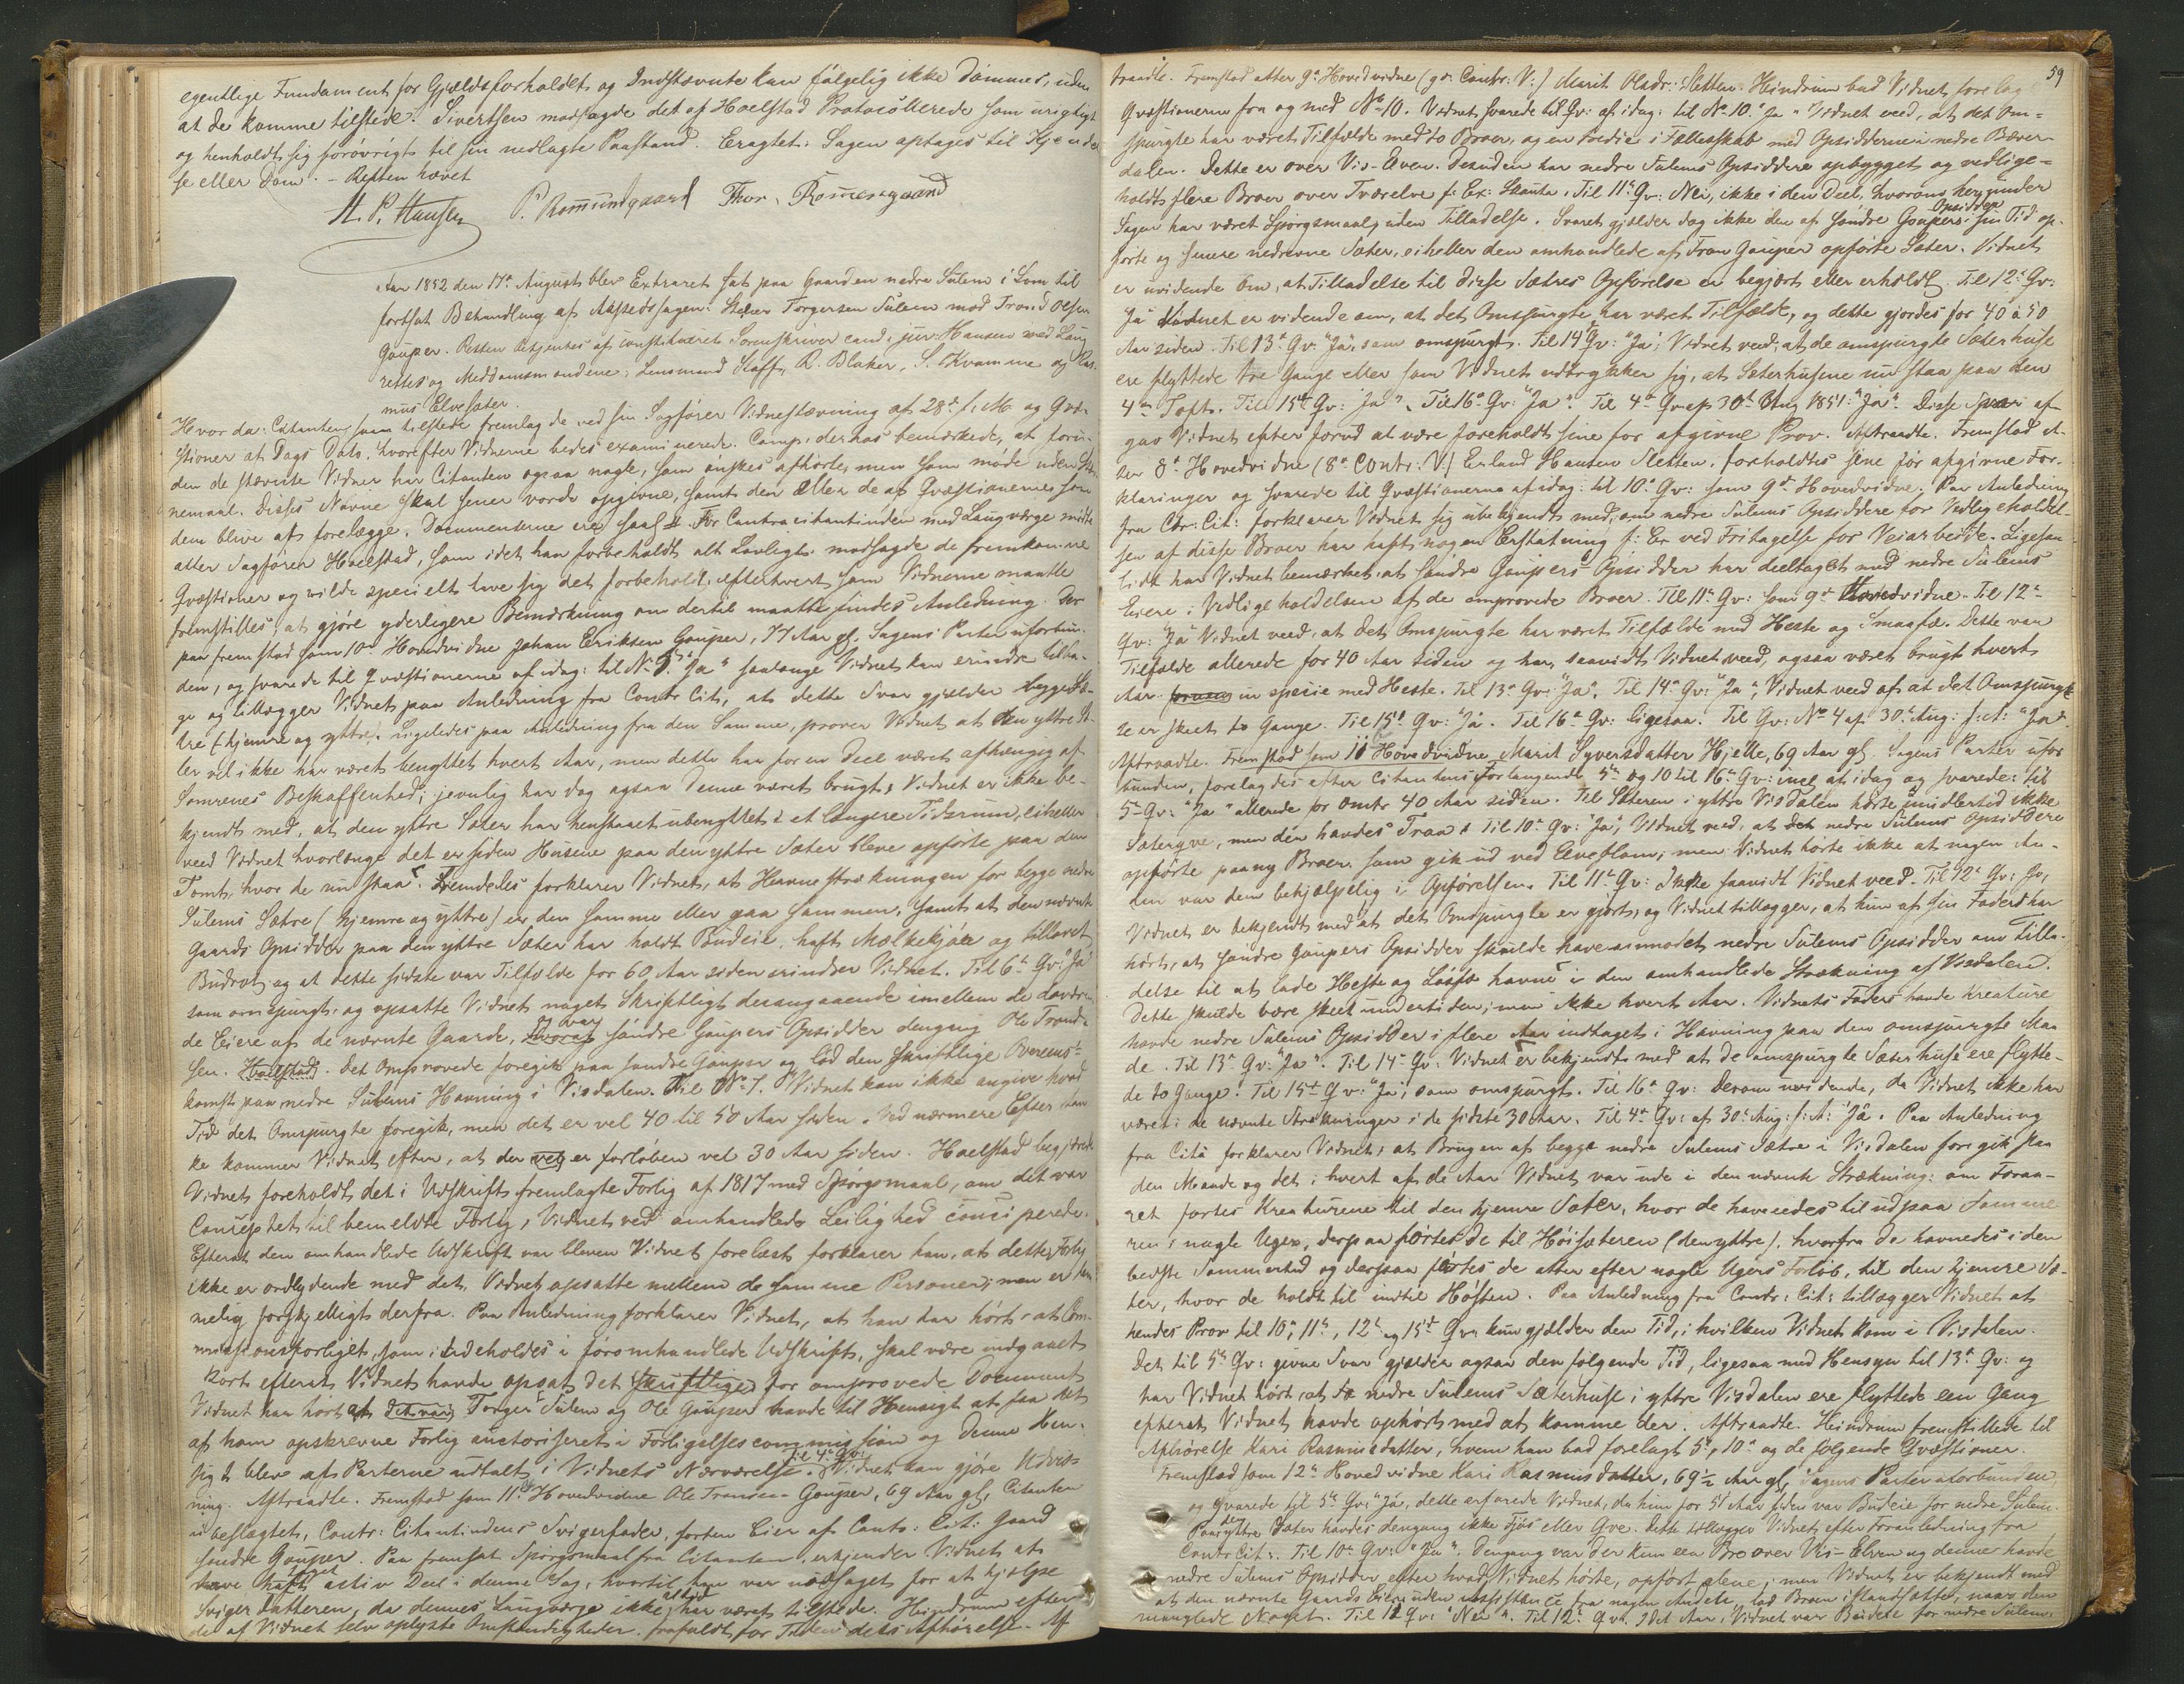 egentlige Fundament for Gjældsforholdet, og Indstævnte kan følgelig ikke dømmes, uden
at de komme tilstede. Sivertsen modsagde det af Hoelstad Protocollerede som urigtigt
og henholdt sig forøvrigt til sin nedlagte Paastand. Eragtet: Sagen optages til Kjendel-
se eller Dom. - Retten hævet
H. P. Hansen P. Romundgaard Thor. Romundgaard
Aar 1852 den 17de August blev Extraret sat paa Gaarden nedre Sulem i Lom til
fortsat Behandling af Aastedssagen: Torgersen Sulem mod Trond Olsen
Gouper. Retten betjentes af constitueret Sorenskriver cand. jur: Hansen med Laug-
rettes og Meddomsmændene: Lensmand Staff, R. Blaker, S. Kvamme og Ras-
mus Elvesæter.
Hvorda: Citanten som tilstede fremlagde ved sin Sagfører Vidnestævning af 28de f: M og Qvæ-
stioner af Dags Dato, hvorefter Vidnerne bedes examinerede. Comp: derhos bemærkede, at foru-
den de stævnte Vidner har Citanten ogsaa nogle, som ønskes afhørte, men som møde uden Stæv-
nemaal. Disses Navne skal senere vorde opgivne, samt den eller de af Qvæstionerne, som
dem blive at forelægge. Documenterne ere saal. For Contracitantinden med Laugværge mødte
atter Sagfører Hoelstad, som idet han forbeholdt alt Lovligt, modsagde de fremkomne
Qvæstioner og vilde specielt have sig det forbeholdt, eftersom Vidnerne maatte
fremstilles, at gjøre yderligere Bemærkning om dertil maatte findes Anledning. Der
paa fremstod som 10de Hovedvidne Johan Eriksen Gouper, 77 Aar gl. Sagens Parter uforbun-
den, og svarede til Qvæstionerne af idag: til No 5. "Ja" saalænge Vidnet kan erindre tilba-
ge og tillægger Vidnet paa Anledning fra Contr. Cit:, at dette Svar gjælder begge Sæ-
tre (hjemre og yttre). Ligeledes paa Anledning fra den Samme, prover Vidnet, at den yttre Sæ-
ter vel ikke har været benyttet hvert Aar, men dette har for en Deel været afhængig af
Somrenes Beskaffenhed; jevnlig har dog ogsaa denne været brugt. Vidnet er ikke be-
kjendt med, at den yttre Sæter har henstaaet ubenyttet i et længere Tidsrum, eiheller
veed Vidnet hvorlænge det er siden Husene paa den yttre Sæter bleve opførte paa den
Tomt, hvor de nu staae. Fremdeles forklarer Vidnet, at Havnestrækningen for begge nedre
Sulems Sætre (hjemre og yttre) er den samme eller gaa sammen, samt at den nævnte
Gaards Opsidder paa den yttre Sæter har holdt Budeie, havt Melkekjøer og tillavet
Budrot, og at dette sidste var Tilfælde for 60 Aar siden erindrer Vidnet. Til 6te Qv: "Ja"
som omspurgt, og opsatte Vidnet noget Skriftligt desangaaende imellem de daværen-
de Eiere af de nævnte Gaarde, og var søndre Goupers Opsidder dengang Ole Trond-
sen. Det Omprovede foregik paa søndre Gouper og lød den skriftlige Overeens-
komst paa nedre Sulems Havning i Visdalen. Til No 7. Vidnet kan ikke angive hvad
Tid det Omspurgte foregik, men det er vel 40 til 50 Aar siden. Ved nærmere Eftertan-
ke kommer Vidnet efter, at der vel er forløben vel 30 Aar siden. Hoelstad begjærede
Vidnet foreholdt det i Udskrift fremlagte Forlig af 1817 med Spørgsmaal, om det var
Conceptet til bemeldte Forlig, Vidnet ved omhandlede Leilighed conciperede.
Efterat den omhandlede Udskrift var bleven Vidnet forelæst forklarer han, at dette Forlig
ikke er ordlydende med det, Vidnet opsatte mellem de samme Personer; men er tem-
melig forskjelligt derfra. Paa Anledning forklarer Vidnet, at han har hørt, at Com-
missionsforliget, som indeholdes i foromhandlede Udskrift, skal være indgaaet
kort efterat Vidnet havde opsat det skriftlige for omprovede Document
Vidnet har hørt at Torger Sulem og Ole Gouper havde til Hensigt at faa det
af ham opskrevne Forlig auctoriseret i Forligelsescommission og denne Hen-
sigt blev af Parterne udtalt i Vidnets Nærværelse. Til 4de Qv: Vidnet kan gjøre Udvis-
ning. Aftraadte. Fremstod som 11te Hovedvidne Ole Trondsen Gouper, 69 Aar gl, Citanten
ubeslægtet, Contr: Citantindens Svigerfader, forhen Eier af Contr: Cit: Gaard
søndre Gouper. Paa fremsat Spørgsmaal fra Citanten, erkjender Vidnet at
have taget activ Deel i denne Sag, hvortil han var nødsaget for at hjælpe
Svigerdatteren, da dennes Laugværge ikke altid har været tilstede. Heindrum efter
de af Vidnet selv oplyste Omstændigheder, frafaldt for Tiden dets Afhørelse. Af
59
traadte. Fremstod atter 9de Hovedvidne (9de Contr: V:) Marit Olsdr: Sletten. Heindrum bad Vidnet forelagt
Qvæstionerne fra og med No 10. Vidnet svarede til Qv: af idag: til No 10. "Ja" Vidnet veed, at det Om-
spurgte har været Tilfælde med to Broer, og en Tredie i Fællesskab med Opsidderne i nedre Bæver-
dalen. Dette er over Vis-Elven. Desuden har nedre Sulems Opsiddere opbygget og vedlige-
holdt flere Broer over Tværelve f: Ex: Skauta. Til 11te Qv: Nei, ikke i den Deel, hvorom herunder
Sagen har været Spørgsmaal, uden Tilladelse. Svaret gjælder dog ikke den af søndre Goupers Opsidder i sin Tid op-
førte og senere nedrevne Sæter, eiheller den omhandlede af Trond Gouper opførte Sæter. Vidnet
er uvidende om, at Tilladelse til disse Sætres Opførelse er begjært eller erholdt. Til 12te Qv:
"Ja" Vidnet er vidende om, at det Omspurgte har været Tilfælde, og dette gjordes for 40 à 50
Aar siden. Til 13de Qv: "Ja", som omspurgt. Til 14de Qv: "Ja", Vidnet veed, at de omspurgte Sæterhuse
ere flyttede tre Gange eller som Vidnet udtrykker sig, at Sæterhusene nu staa paa den
4de Toft. Til 15de Qv: "Ja". Til 16de Qv: "Ja". Til 4de Qv: af 30te Aug 1851: "Ja". Disse Svar af-
gav Vidnet efter forud at være foreholdt sine før afgivne Prov. Aftraadte. Fremstod at-
ter 8de Hovedvidne (8de Contr: V.) Erland Hansen Sletten, forholdtes sine før afgivne For-
klaringer og svarede til Qvæstionerne af idag: til 10de Qv: som 9de Hovedvidne. Paa Anledning
fra Ctr: Cit: forklarer Vidnet sig ubekjendt med, om nedre Sulems Opsiddere for Vedligeholdel-
sen af disse Broer har havt nogen Erstatning f: Ex ved Fritagelse for Veiarbeide. Ligesaa-
lidt har Vidnet bemærket, at søndre Goupers Opsidder har deeltaget med nedre Sulems
Eiere i Vedligeholdelsen af de omprovede Broer. Til 11te Qv: som 9de Hovedvidne. Til 12te
Qv: "Ja" Vidnet veed, at det Omspurgte har været Tilfælde med Heste og Smaafæ. Dette var
Tilfælde allerede for 40 Aar siden og har, saavidt Vidnet veed, ogsaa været brugt hvert
Aar in specie med Heste. Til 13de Qv: "Ja". Til 14de Qv: "Ja", Vidnet veed af at det Omspurg-
te er skeet to Gange. Til 15de Qv: "Ja". Til 16de Qv: ligesaa. Til Qv: No 4 af 30te Aug: f: A: "Ja".
Aftraadte. Fremstod som 11te Hovedvidne Marit Syversdatter Hjelle, 69 Aar gl, Sagens Parter ufor
bunden, forelagdes efter Citantens Forlangende 5te og 10 til 16de Qv: incl. af idag og svarede: til
5te Qv: "Ja" allerede for omtr 40 Aar siden. Til Sæteren i yttre Visdalen hørte imidlertid ikke
Sætergve, men der havdes Traa. Til 10de Qv: "Ja", Vidnet veed, at nedre Sulems Opsiddere
opførte paany Broer, som gik ud ved Elveflom; men Vidnet hørte ikke at nogen An-
den var dem behjælpelig i Opførelsen. Til 11te Qv: Ikke saavidt Vidnet veed. Til 12te Qv: Jo,
Vidnet er bekjendt med at det Omspurgte er gjort, og Vidnet tillægger, at hun af sin Fader har
hørt, at søndre Goupers Opsidder skulde have anmodet nedre Sulems Opsidder om Tilla-
delse til at lade Heste og Løsfæ havne i den omhandlede Strækning af Visdalen.
Dette skulde være skeet undertiden; men ikke hvert Aar. Vidnets Faders havde Kreature
havde nedre Sulems Opsidder i flere Aar indtaget i Havning paa den omspurgte Maa
de. Til 13de Qv: "Ja". Til 14de Qv: Vidnet er bekjendt med at de omspurgte Sæterhuse ere flytte-
de to Gange. Til 15de Qv: "Ja", som omspurgt. Til 16de Qv: Derom uvidende, da Vidnet ikke har
været i de nævnte Strækninger i de sidste 30 Aar. Til 4de Qv: af 30te Aug: f: A: "Ja". Paa Anledning
fra Cit: forklarer Vidnet, at Brugen af begge nedre Sulems Sætre i Visdalen foregik paa
den Maade og det i hvert af de Aar Vidnet var ude i den nævnte Strækning: om Foraa-
ret førtes Kreaturene til den hjemre Sæter, hvor de havnedes til ud paa Somme
ren, nogle Uger, derpaa førtes de til Høisæteren (den yttre), hvorfra de havnedes i den
bedste Sommertid og derpaa førtes de atter efter nogle Ugers Forløb, til den hjemre Sæ-
ter, hvor de holdt til indtil Høsten. Paa Anledning fra Contr: Cit: tillægger Vidnet at
hendes Prov til 10de, 11te, 12te og 15de Qv: kun gjælder den Tid, i hvilken Vidnet kom i Visdalen.
Det til 5te Qv: givne Svar gjælder ogsaa den følgende Tid, ligesaa med Hensyn til 13de Qv: og
har Vidnet hørt, at de nedre Sulems Sæterhuse i yttre Visdalen ere flyttede een Gang
efterat Vidnet havde ophørt med at komme der. Aftraadte. Heindrum fremstillede til
Afhørelse Kari Rasmusdatter, hvem han bad forelagt 5te, 10de og de følgende Qvæstioner.
Fremstod som 12te Hovedvidne Kari Rasmusdatter, 69½ Aar gl, Sagens Parter uforbunden,
og svarede til 5te Qv: "Ja", dette erfarede Vidnet, da hun for 51 Aar siden var Budeie for nedre Sulem.
Paa den yttre Sæter havdes dengang ikke Fjøs eller Gve. Dette tillægger Vidnet efter Foranledning fra
Contr Cit:. Til 10de Qv: "Ja". Dengang var der kun een Bro over Vis-Elven og denne havde
nedre Sulems Opsidder efter hvad Vidnet hørte, opført alene; men Vidnet er bekjendt med
at den nævnte Gaards Eier uden Assistance fra nogen Anden, lod Broen istandsætte, naar den
manglede Noget. Til 11 Qv: "Nei". Til 12te Qv: I det Aar, Vidnet var Budeie for nedre Sulem,